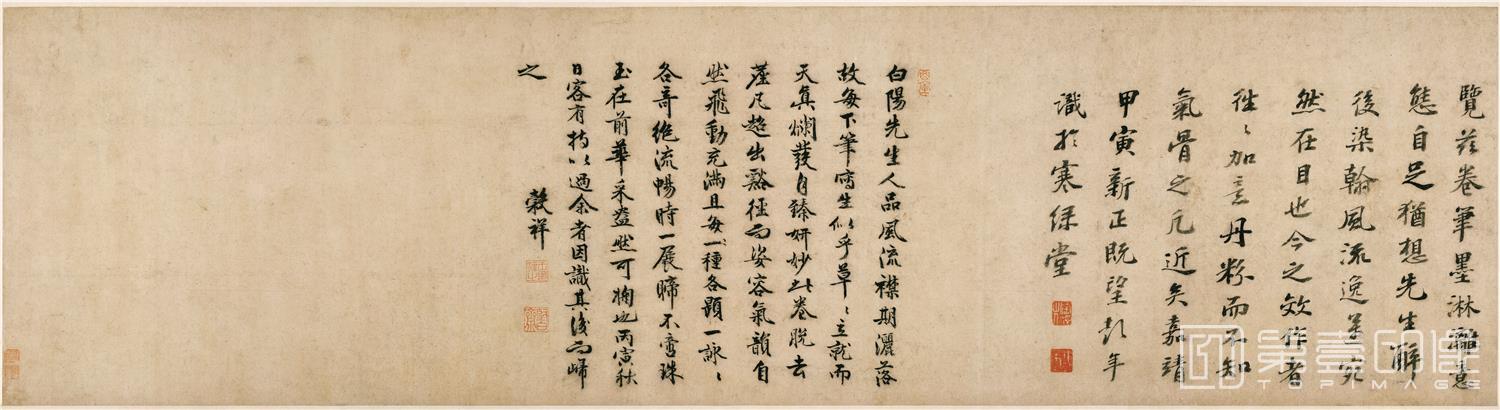 覽茲卷筆墨淋漓意
態自足猶想先生醉
後染翰風流逸宕
然在目也今之效作者
往〻加意丹粉而不知
氣骨之凡近矣嘉靖
甲寅新正既望彭年
識於寒綠堂
白陽先生人品風流襟期灑落
故每下筆寫生似乎草〻立就而
天真爛發自臻妍妙此卷脫去
蹊凡超出谿徑而姿容氣韻自
然飛動充滿且每一種各題一詠〻
各奇絕流暢時一展睇不啻珠
玉在前華采盎然可掬也丙寅秋
日客有持以過余者因識其後而歸
之
穀祥
第壹印象
TOPIMAGE